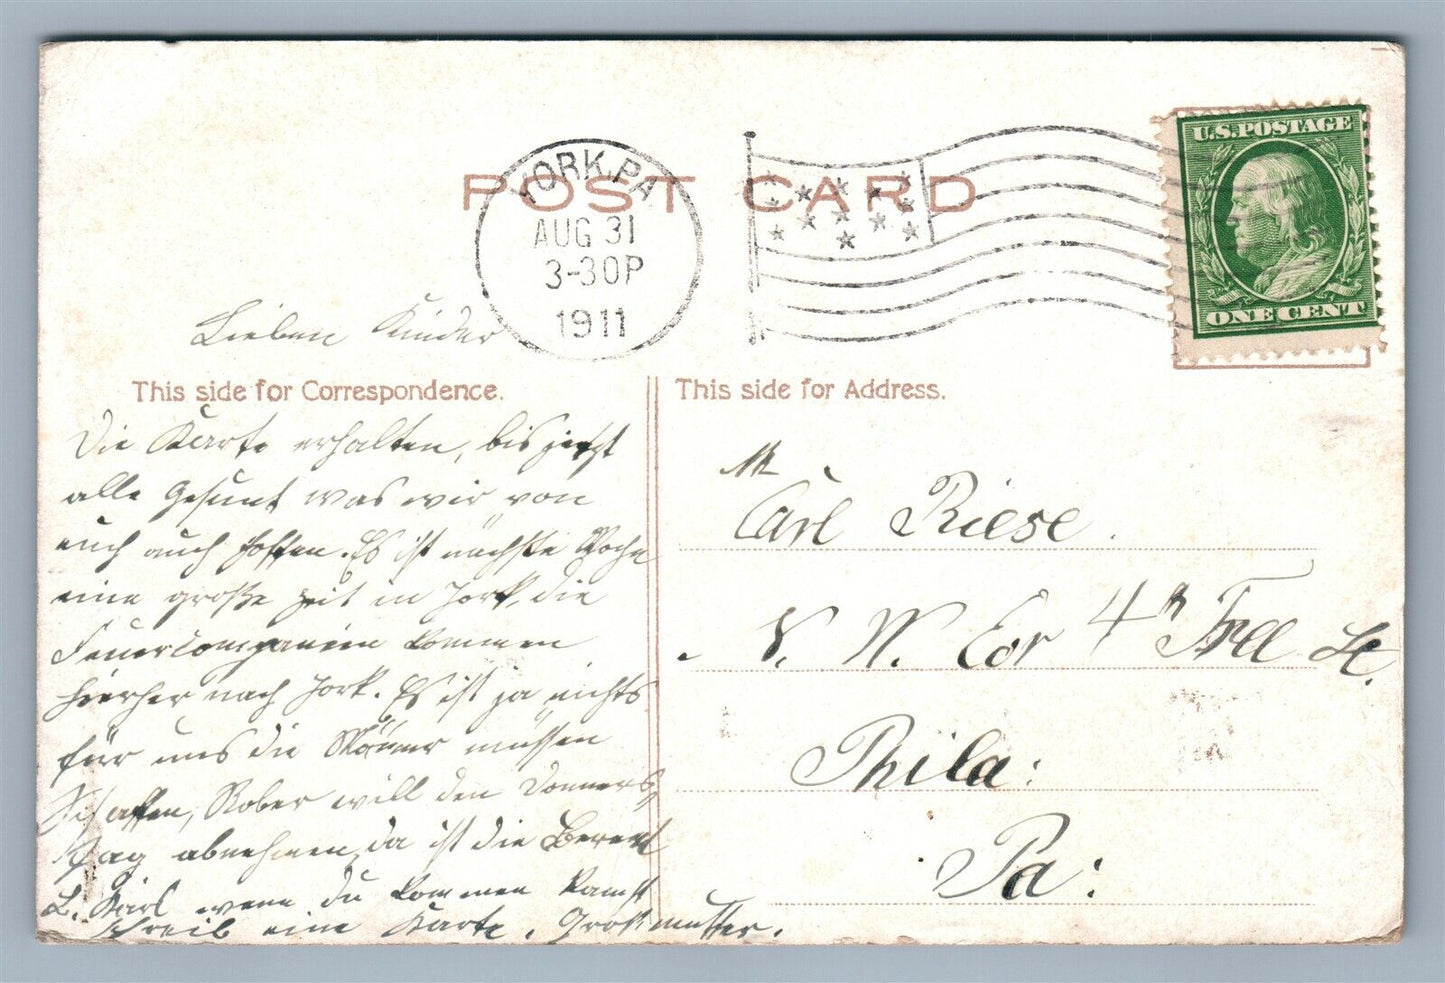 POST CARD
YORK, PA
AUG 31
3-30P
1911
U.S. POSTAGE
ONE CENT
Lieben Kinder
This side for Correspondence.
Die Karte erhalten, bis jetzt
alle Gesunt was wir von
euch auch hoffen. Es ist nächste Woche
eine große Zeit in York, die
Feuercompanien kommen
hierher nach York. Es ist ja nichts
für uns die Männer müssen
Schaffen, Rober will den Donners
tag abnehmen, da ist die
L. Karl wenn du kommen kannst
schreib eine Karte. Großmutter.
This side for Address.
Mr
Carl Riese.
N. W. Cor 4th St.
Phila:
Pa: